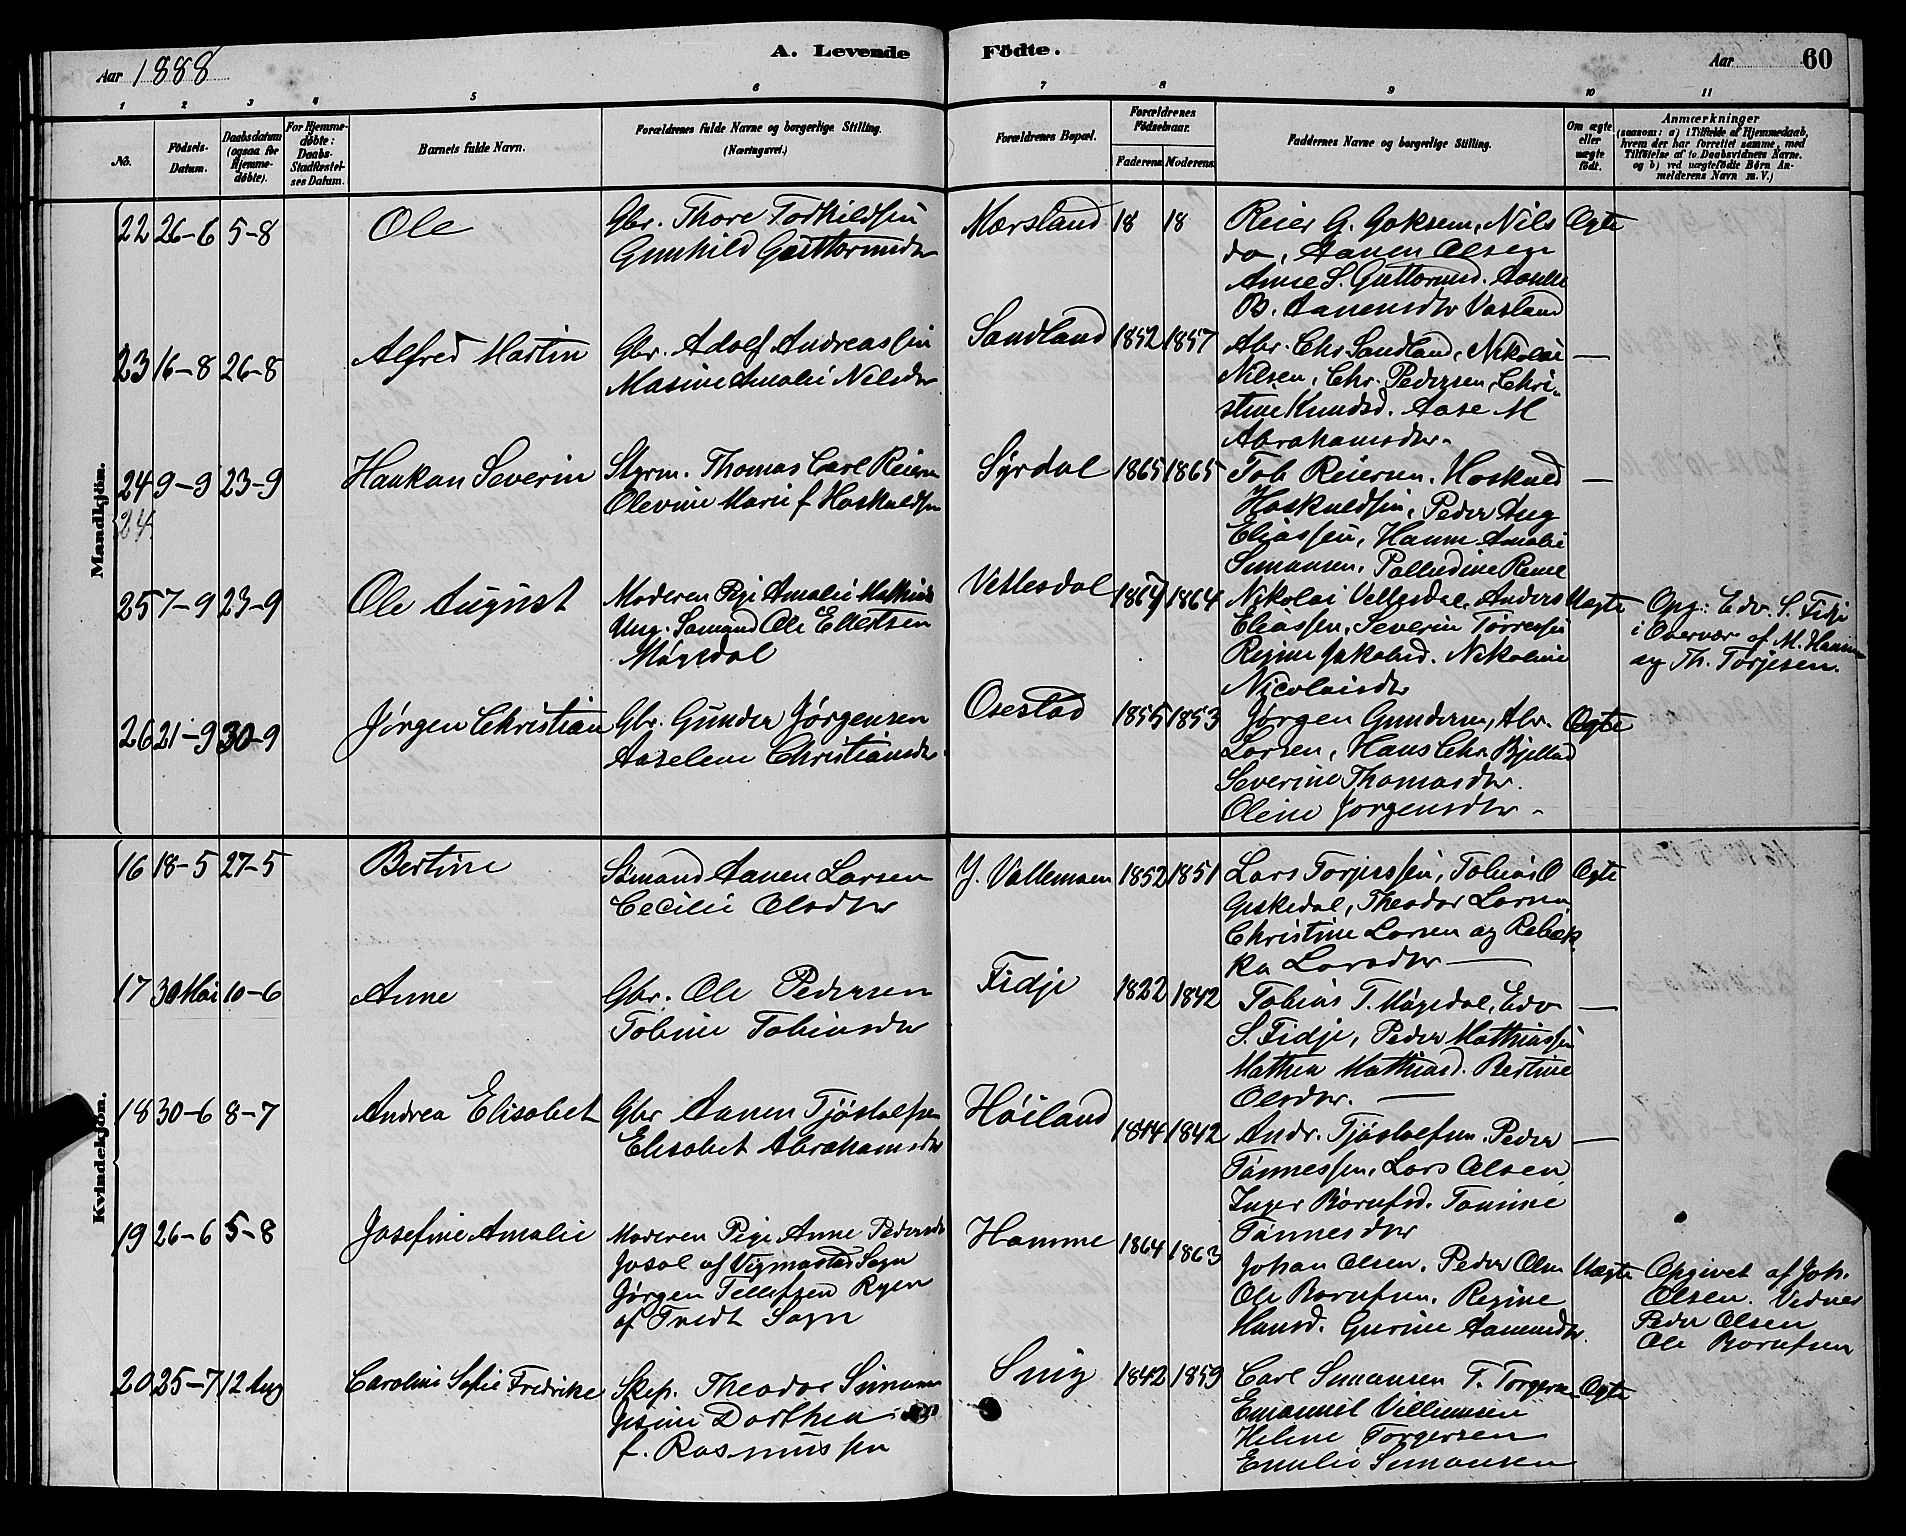 Aar 1888
A. Levende Födte.
Aar 60
1 2 3 4 5 6 7 8 9 10 11
No.
Födsels-Datum.
Daabsdatum (ogsaa for Hjemme-døbte).
For Hjemme-døbte: Daabs-Stadfæstel-ses Datum.
Barnets fulde Navn.
Forældrenes fulde Navne og borgerlige Stilling. (Næringsvei.)
Forældrenes Bopæl.
Forældrenes Födselsaar.
Faderens Moderens
Faddernes Navne og borgerlige Stilling.
Om ægte eller uægte født.
Anmærkninger
(saasom: a) i Tilfælde af Hjemmedaab, hvem der har forrettet samme, med Tilföielse af to Daabsvidners Navne, og b) ved uægtefödte Börn An-melderens Navn m. V.)
Mandkjön.
22 26-6 5-8 Ole
Gbr. Thore Torkildsen
Gunhild Guttormsdtr
Mærsland 18 18
Reier G. Goksem, Nils
do, Aanen Olsen
Anne S. Guttormsd.
B. Aanensdtr Vasland
Ægte
23 16-8 26-8 Alfred Martin
Gbr. Adolf Andreassen
Masine Amalie Nilsdtr
Sandland 1852 1857
Abr. Chr Sandland, Nikolai
Nilsen, Chr. Pedersen, Chri-
stine Knudsd. Aase M
Abrahamsdtr.
—
24 9-9 23-9 Haakon Severin
24
Styrm. Thomas Carl Reiersen
Olevine Marie f Hoskuldsen
Syrdal 1865 1865
Tob Reiersen, Hoskuld
Hoskuldsen, Peder Aug
Eliassen, Hanne Amalie
Simonsen, Palludine
—
25 7-9 23-9 Ole August
Moderen Pige Amalie Mathias
Ung. Sømand Ole Ellertsen
Møgedal
Vetlesdal 1867 1864
Nikolai Vetlesdal, Anders
Eliassen, Severin Tørressen
Regine Jakobsd. Nikoline
Nicolaisdtr
Uægte
Opg: Edv. S. Fidje
i Overvær af M. Hamre
og Th. Torjesen.
26 21-9 30-9 Jørgen Christian
Gbr. Gunder Jørgensen
Aaselene Christiansdtr
Osestad 1855 1853
Jørgen Gundersen, Abr.
Larsen, Hans Chr. Bjelland
Severine Thomasdtr.
Oline Jørgensdtr
Ægte
Kvindekjön.
16 18-5 27-5 Bertine
Sømand Aanen Larsen
Cecilie Olsdtr
Y. Vallemoen 1852 1851
Lars Torjussen, Tobias O
Geskedal, Theodor Larsen
Christine Larsen og Rebek
ka Larsdtr —
Ægte
17 30 Mai 10-6 Anne
Gbr. Ole Pedersen
Tobine Tobiasdtr
Fidje 1822 1842
Tobias T. Møgedal, Edv
S. Fidje, Peder Mathiassen
Mathea Mathiasd. Bertine
Olsdtr. —
—
18 30-6 8-7 Andrea Elisabet
Gbr Aanen Tjøstolfsen
Elisabet Abrahamsdtr
Høiland 1844 1842
Andr. Tjøstolfsen, Peder
Tønnessen, Lars Olsen
Inger Børufsd. Tomine
Tønnesdtr
—
19 26-6 5-8 Josefine Amalie
Moderen Pige Anne Pedersdtr
Josal af Vigmostad Sogn
Jørgen Tellefsen Ryen
af Tveit Sogn
Homme 1864 1863
Johan Olsen, Peder Olsen
Ole Børufsen. Regine
Hansd. Gurine Aamundsdtr.
Uægte
Opgivet af Joh.
Olsen. Vidner
Peder Olsen
Ole Børufsen
20 25-7 12 Aug Caroline Sofie Fredrike
Skip. Theodor Simonsen
Gesine Dorthea
f. Rasmussen
Snig 1842 1859
Carl Simonsen T. Torgersen
Emanuel Villumsen
Helene Torgersen
Emilie Simonsen
Ægte